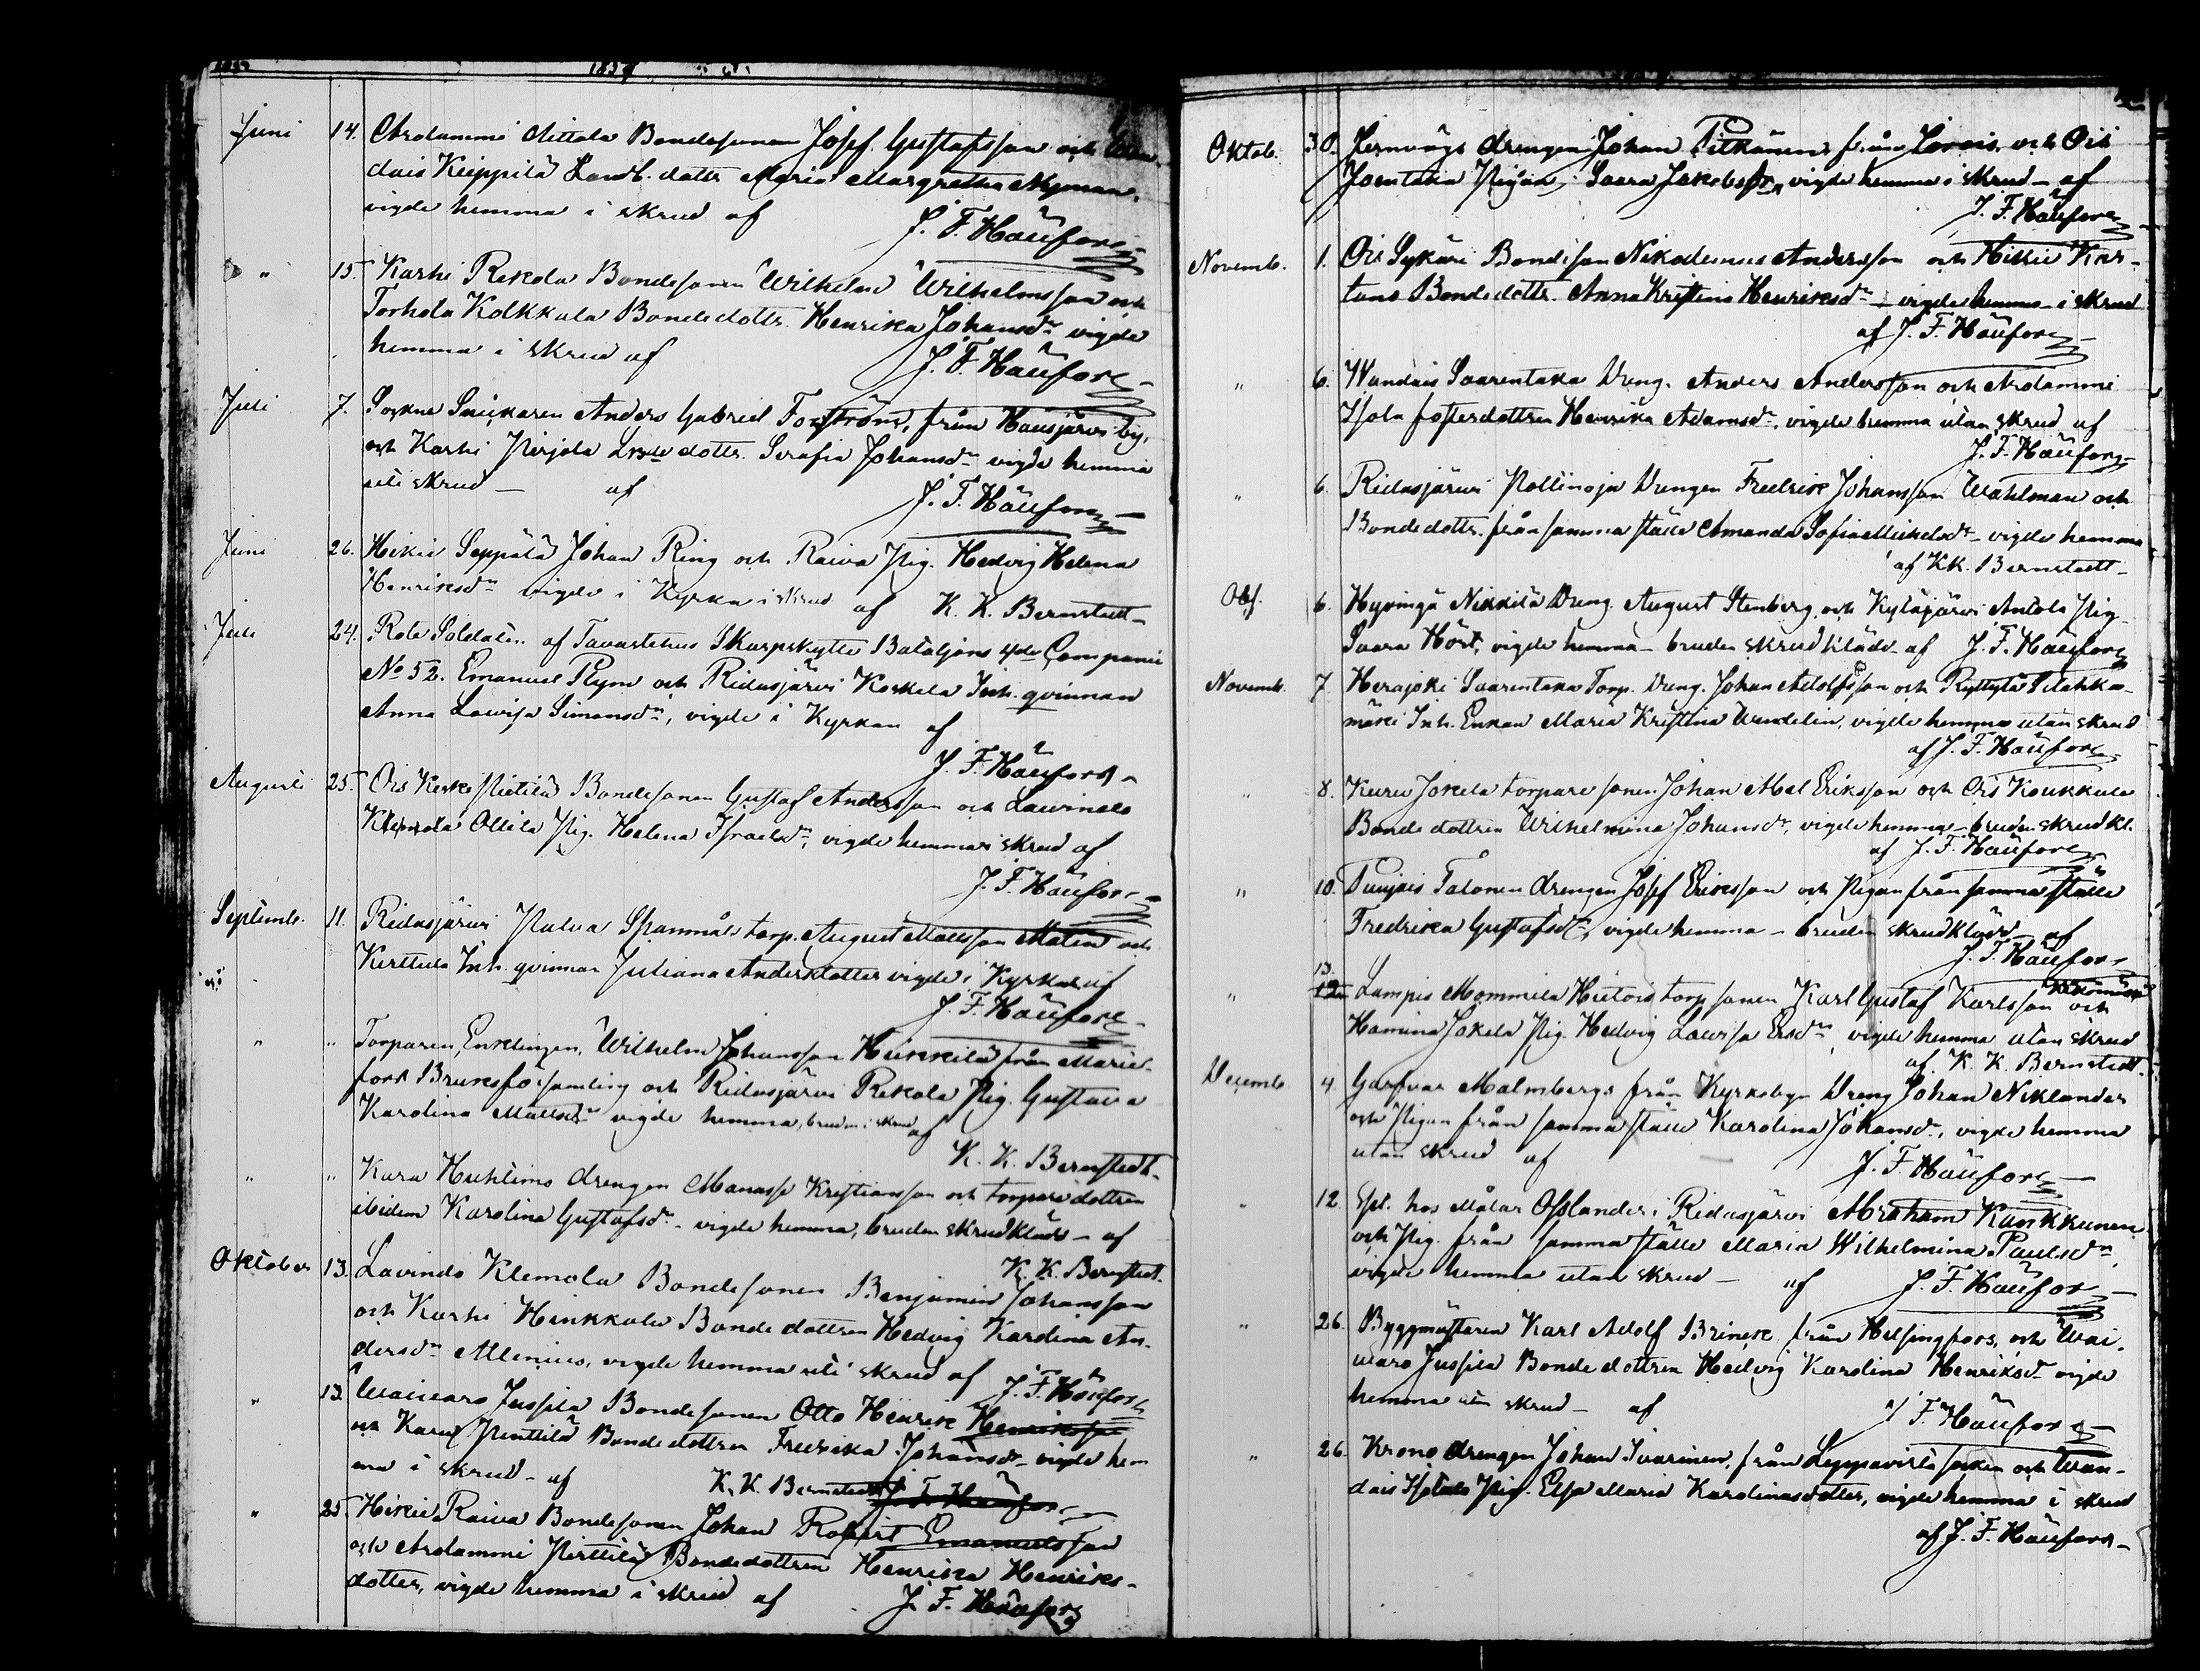 1859
Juni 14. Arolammi Aittala Bondesonen Josef Gustafsson och
dais Keippilä Landb. dottr Maria Margretha Nyman,
vigde hemma i skrud af J. F. Häufors
" 15. Karhi Rekola Bondesonen Wilhelm Wilhelmsson och
Torhola Kolkkala Bondedottr. Henrika Johansdr vigde
hemma i skrud af J. F. Häufors
Juli 7. Sockne Snickaren Anders Gabriel Forström, från Hausjärvi by,
och Karhi Pirjola dottr. Serafia Johansdr vigde hemma
uti skrud — af J. F. Häufors
Juni 26. Hikie Seppälä Johan Ring och Raiva Pig. Hedvig Helena
Henriksdr vigde i Kyrka i skrud af K. K. Bernstedt
Juli 24. Rote Soldaten af Tavastehus Skarpskytte Bataljons 4de Companie
No 52. Emanuel Plym och Ridasjärvi Koskela Inh. qvinnan
Anna Lovisa Simonsdr, vigde i Kyrkan af
J. F. Häufors
Augusti 25. Ois Keske Pietilä Bondesonen Gustaf Andersson och Lavindo
Klemola Ollila Pig. Helena Israelsdr, vigde hemma i skrud af
J. F. Häufors
Septemb. 11. Ridasjärvi Palva Spanmås torp. August Mattsson Malin och
Kerttula Inh. qvinnan Juliana Andersdotter vigde i Kyrkan af
J. F. Häufors
" " Torparen, Enklingen, Wilhelm Johansson Heikkilä från Marie-
fors Bruksförsamling och Ridasjärvi Rekola Pig. Gustava
Karolina Mattsdr vigde hemma, bruden i skrud af
K. K. Bernstedt
" " Kara Huhtimo drengen Manasse Kristiansson och torpare dottren
ibidem Karolina Gustafsdr vigde hemma, bruden skrudklädd — af
K. K. Bernstedt
Oktober 13. Lavindo Klemola Bondesonen Benjamin Johansson
och Karhi Heikkala Bonde dottren Hedvig Karolina An-
dersdr Allenius, vigde hemma uti skrud af J. F. Häufors
" 13. Waivaro Jussila Bondesonen Otto Henrik Henriksson
och Karu Penttilä Bonde dottren Fredrika Johansdr vigde hem
ma i skrud — af K. K. Bernstedt J. F. Häufors
" 25. Hikie Raiva Bondesonen Johan Robert Emanuelsson
och Arolammi Perttilä Bondedottren Henrika Henriks-
dotter, vigde hemma i skrud af J. F. Häufors
Oktob. 30. Jernvägs drengen Johan Pitkänen från och Ois
Joentaka Pigan, Saara Jakobsdr, vigde hemma i skrud — af
J. F. Häufors
Novemb. 1. Ois Sykäri Bondeson Nikodemus Andersson och Hikie Kar-
tano Bondedottr. Anna Kristina Henriksdr — vigde hemma i skrud
af J. F. Häufors
" 6. Wandais Saarentaka Dreng. Anders Andersson och Arolammi
Isola fosterdottren Henrika Adamsdr, vigde hemma utan skrud af
J. F. Häufors
" 6. Ridasjärvi Pollinoja Drengen Fredrik Johansson Wahlman och
Bondedottr. från samma ställe Amanda Sofia Mickelsdr vigde hemma
af K.K. Bernstedt
Obs. 6. Hyvingä Nikkilä Dreng August Stenberg och Kytäjärvi Antola Pig.
Saara Hört, vigde hemma — bruden skrudklädd af J. F. Häufors
Novemb. 7. Herajoki Saarentaka Torp. Dreng. Johan Adolfsson och Ryttylä Pitähka-
mäki Inh. Enkan Maria Kristina Wendelin, vigde hemma utan skrud
af J. F. Häufors
" 8. Kuru Jokela torpare sonen Johan Abel Eriksson och Ois Koukkula
Bonde dottren Wilhelmina Johansdr, vigde hemma — bruden skrudkl.
af J. F. Häufors
" 10. Punjois Talonen drengen Josef Eriksson och Pigan från samma ställe
Fredrika Gustafsdr, vigde hemma — bruden skrudklädd — af
J. F. Häufors
13.
" 12. Lampis Mommila Hietois torp sonen Karl Gustaf Karlsson och
Hamina Jokela Pig. Hedvig Lovisa Ersdr, vigde hemma utan skrud
af K. K. Bernstedt.
Decemb. 4. Garfvar Malmbergs från Kyrkobyn Dreng Johan Niklander
och Pigan från samma ställe Karolina Johansdr, vigde hemma
utan skrud af J. F. Häufors
" 12. hos Målar Osolander i Ridasjärvi Abraham Kankkunen
och Pig. från samma ställe Maria Wilhelmina Paulsdr,
vigde hemma utan skrud — af J. F. Häufors
" 26. Byggmästaren Karl Adolf Brinck från Helsingfors, och Wai-
varo Jussila Bonde dottren Hedvig Karolina Henriksdr vigde
hemma uti skrud — af J. F. Häufors
" 26. Krono drengen Johan Ivarinen, från Leppävirta socken och Wan-
dais Isotalo Pig. Elsa Maria Karolinasdotter, vigde hemma i skrud
af J. F. Häufors